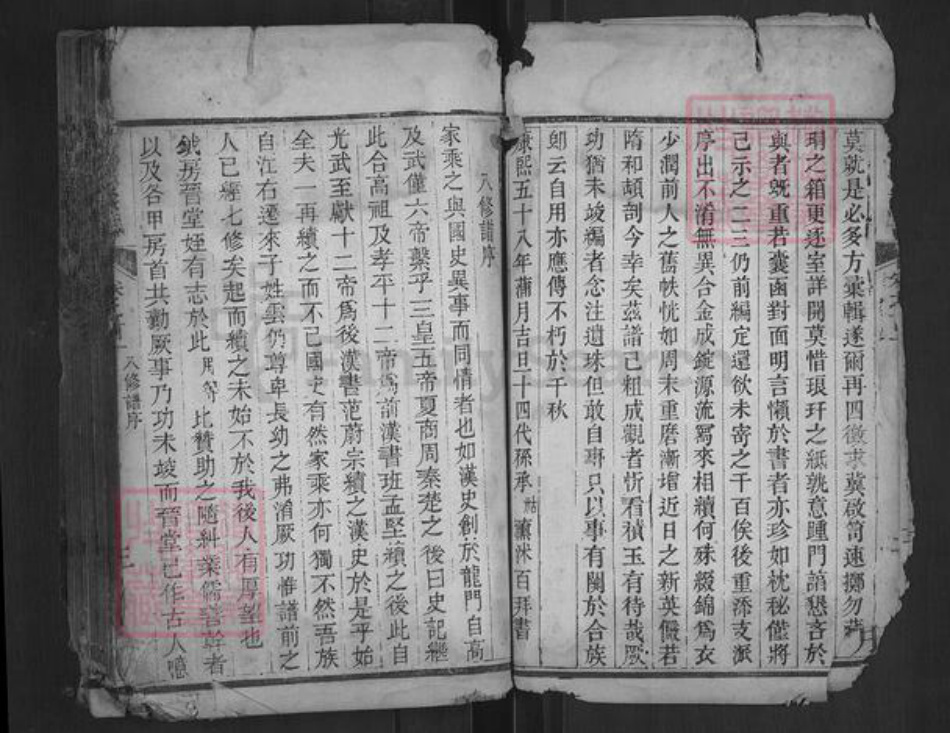 莫就是必多方彙輯遂爾再四徵求冀啟笥速擲勿
瑚之箱更逐室詳開莫惜琅玕之紙孰意踵門諳懇吝於
與者旣重若囊函對面明言懶於書者亦珍如枕秘僅將
己示之二三仍前編定還欲未寄之千百俟後重添支派
序出不淆無異合金成錠源流寫來相續何殊綴錦爲衣
少潤前人之舊帙恍如周末重磨漸增近日之新英儼若
隋和頑剖今幸矣茲譜已粗成觀者忻看積玉有待哉厥
功猶未竣編者念注遺珠但敢自專只以事有關於合族
卽云自用亦應傳不朽於千秋
康熙五十八年蒲月吉旦十四代孫承 薰沐百拜書
八修譜序
家乘之與國史異事而同情者也如漢史創於龍門自高
及武僅六帝繫乎三皇五帝夏商周秦楚之後曰史記繼
此合高祖及孝平十二帝爲前漢書班孟堅續之後此自
光武至獻十二帝爲後漢書范蔚宗續之漢史於是乎始
全夫一再續之而不已國史有然家乘亦何獨不然吾族
自江右遷來子姓雲仍尊卑長幼之弗淆厥功惟譜前之
人已經七修矣起而續之未始不於我後人有厚望也
鉞房晉堂姪有志於此 用等 比贊助之隨糾業儒 者
以及各甲房首共勷厥事乃功未竣而晉堂已作古人噫
八修譜序
三